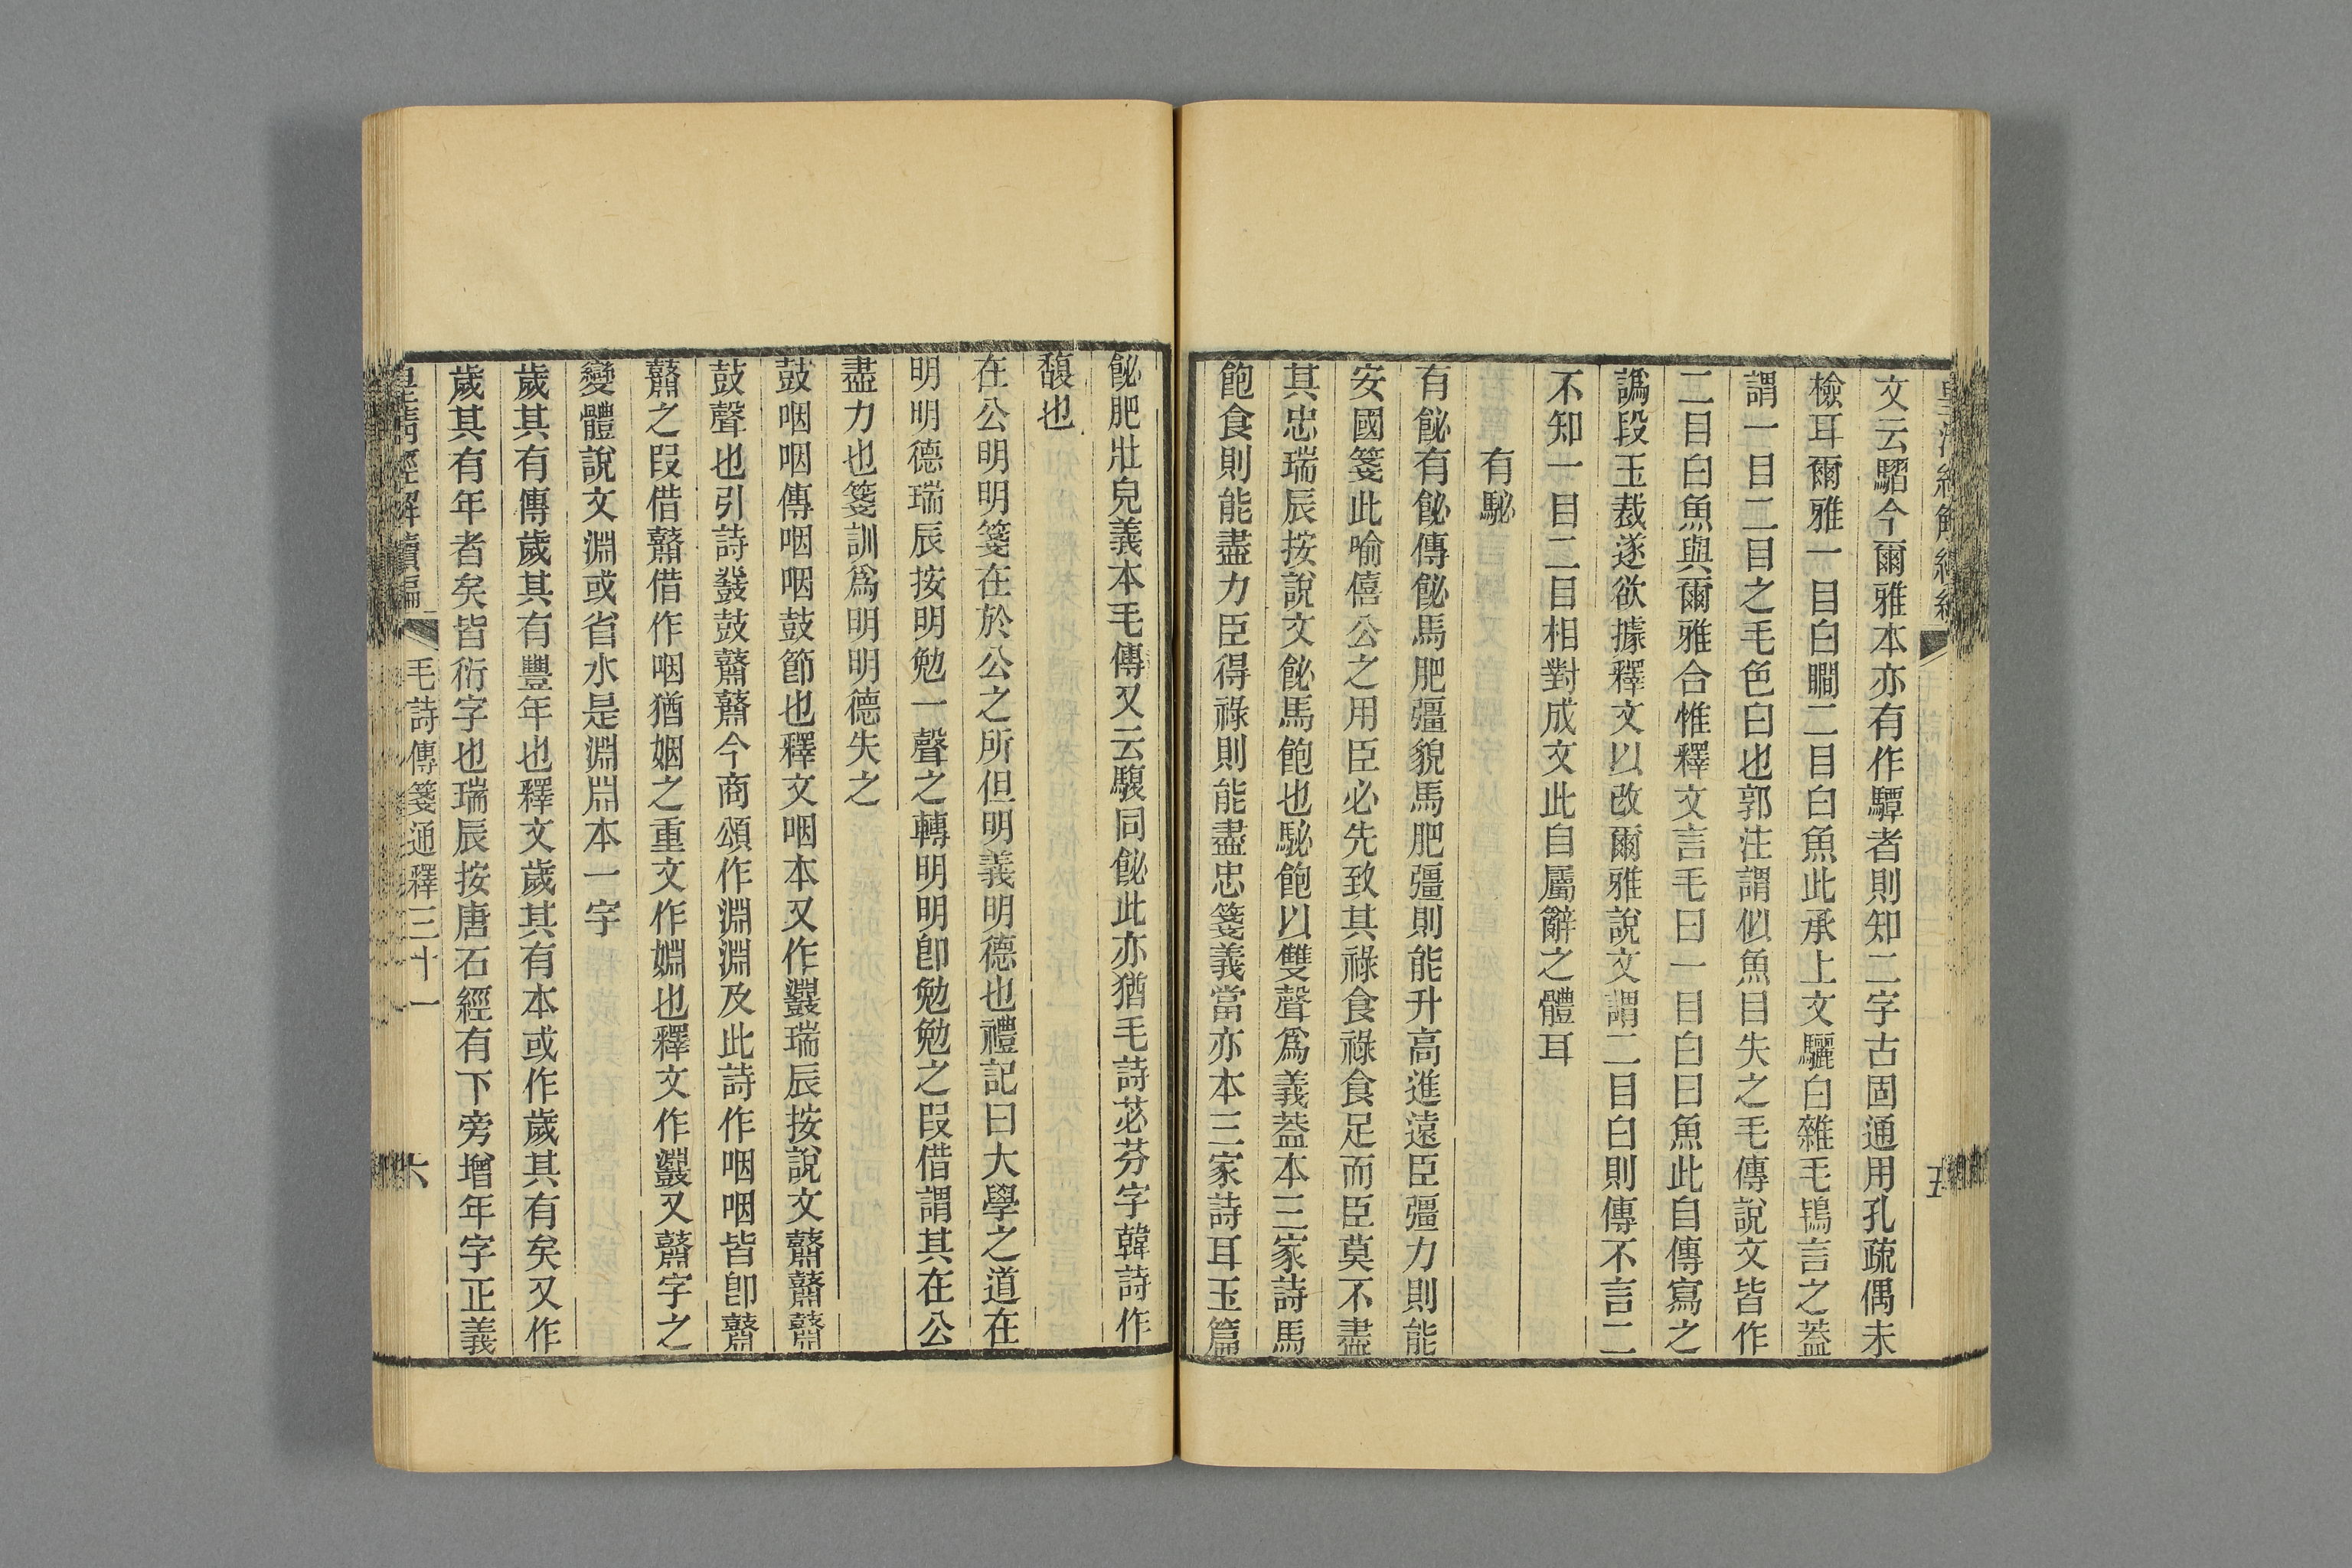 文云騽今爾雅本亦有作驔者則知二字古固通用孔疏偶未
檢耳爾雅一目白瞯二目白魚此承上文驪白雜毛鴇言之蓋
謂一目二目之毛色白也郭注謂似魚目失之毛傳說文皆作
二目白魚與爾雅合惟釋文言毛曰一目白曰魚此自傳寫之
譌段玉裁遂欲據釋文以改爾雅說文謂二目白則傳不言二
不知一目二目相對成文此自屬辭之體耳
有駜
有駜有駜傳駜馬肥彊貌馬肥彊則能升高進遠臣彊力則能
安國箋此喻僖公之用臣必先致其祿食祿食足而臣莫不盡
其忠瑞辰按說文駜馬飽也駜飽以雙聲為義蓋本三家詩馬
飽食則能盡力臣得祿則能盡忠箋義當亦本三家詩耳玉篇
五
飶肥壯皃義本毛傳又云馥同飶此亦猶毛詩苾芬字韓詩作
馥也
在公明明箋在於公之所但明義明德也禮記曰大學之道在
明明德瑞辰按明勉一聲之轉明明卽勉勉之叚借謂其在公
盡力也箋訓爲明明德失之
鼓咽咽傳咽咽鼓節也釋文咽本又作鼝瑞辰按說文鼘鼘
鼓聲也引詩鼗鼓鼘鼘今商頌作淵淵及此詩作咽咽皆卽鼘
鼘之叚借鼘借作咽猶姻之重文作婣也釋文作鼝又鼘字之
變體說文淵或省水是淵𣶒本一字
歲其有傳歲其有豐年也釋文歲其有本或作歲其有矣又作
歲其有年者矣皆衍字也瑞辰按唐石經有下旁增年字正義
皇淸經解續編
毛詩傳箋通釋三十一
六